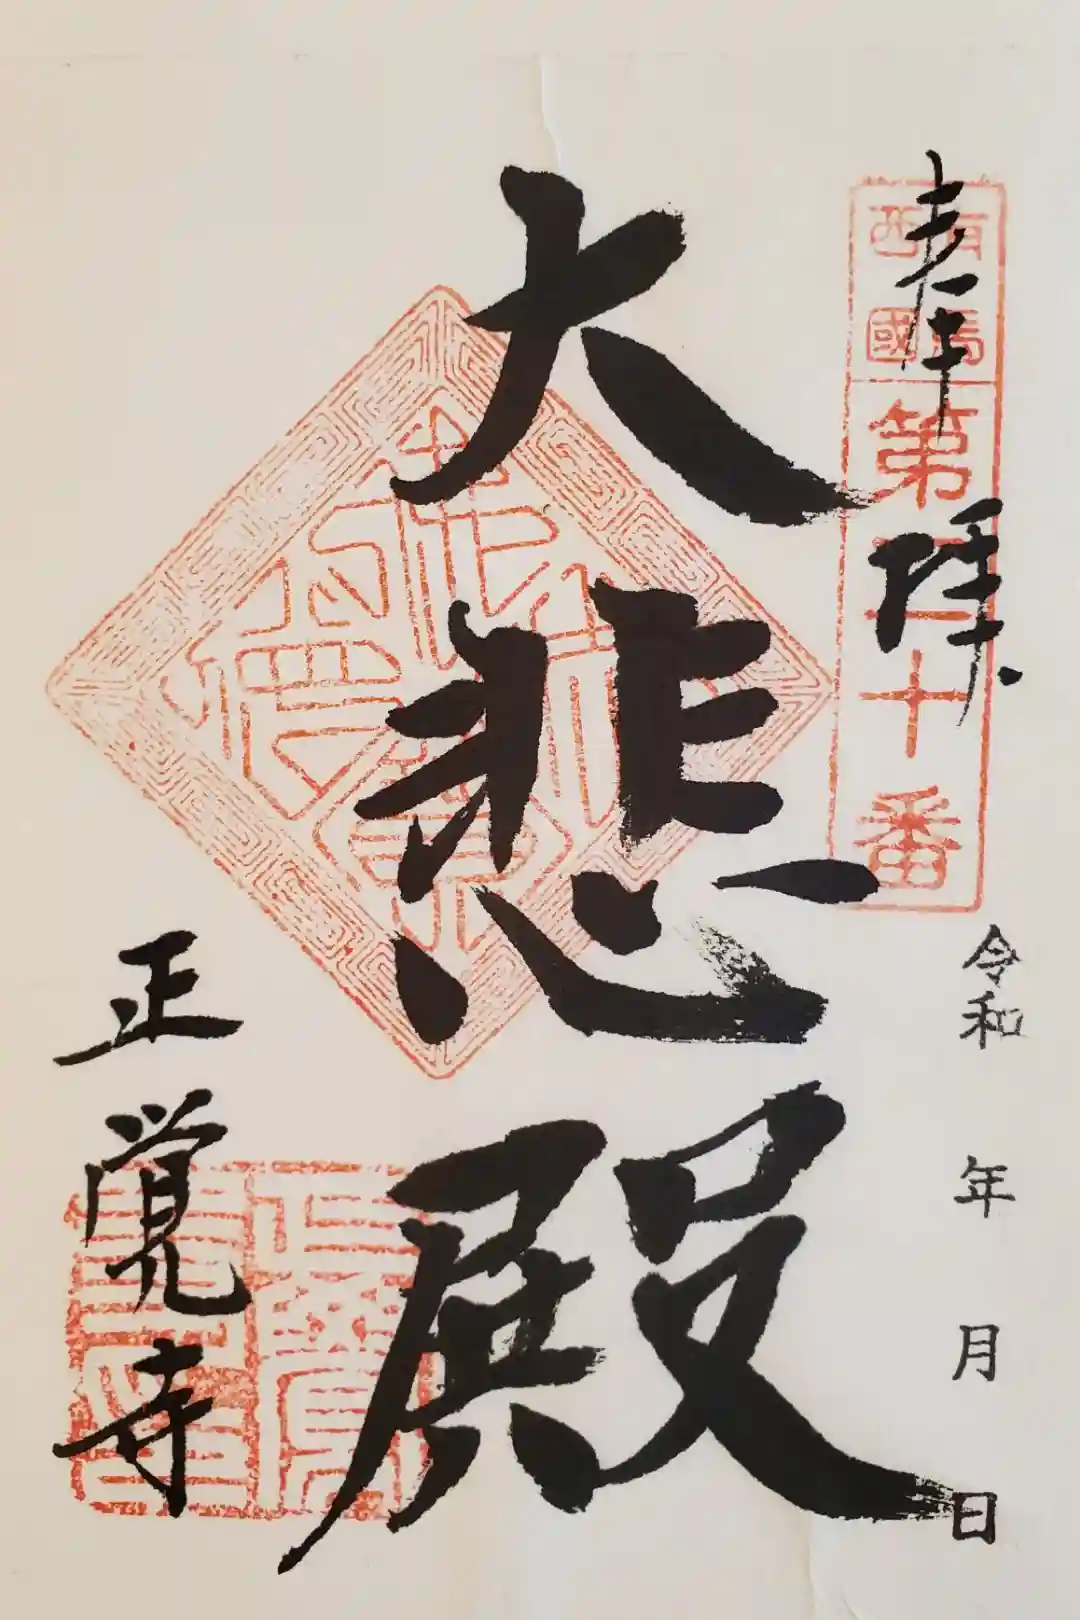 奉拝
有馬
西國
第二十番
令和 年 月 日
大悲殿
正覚寺